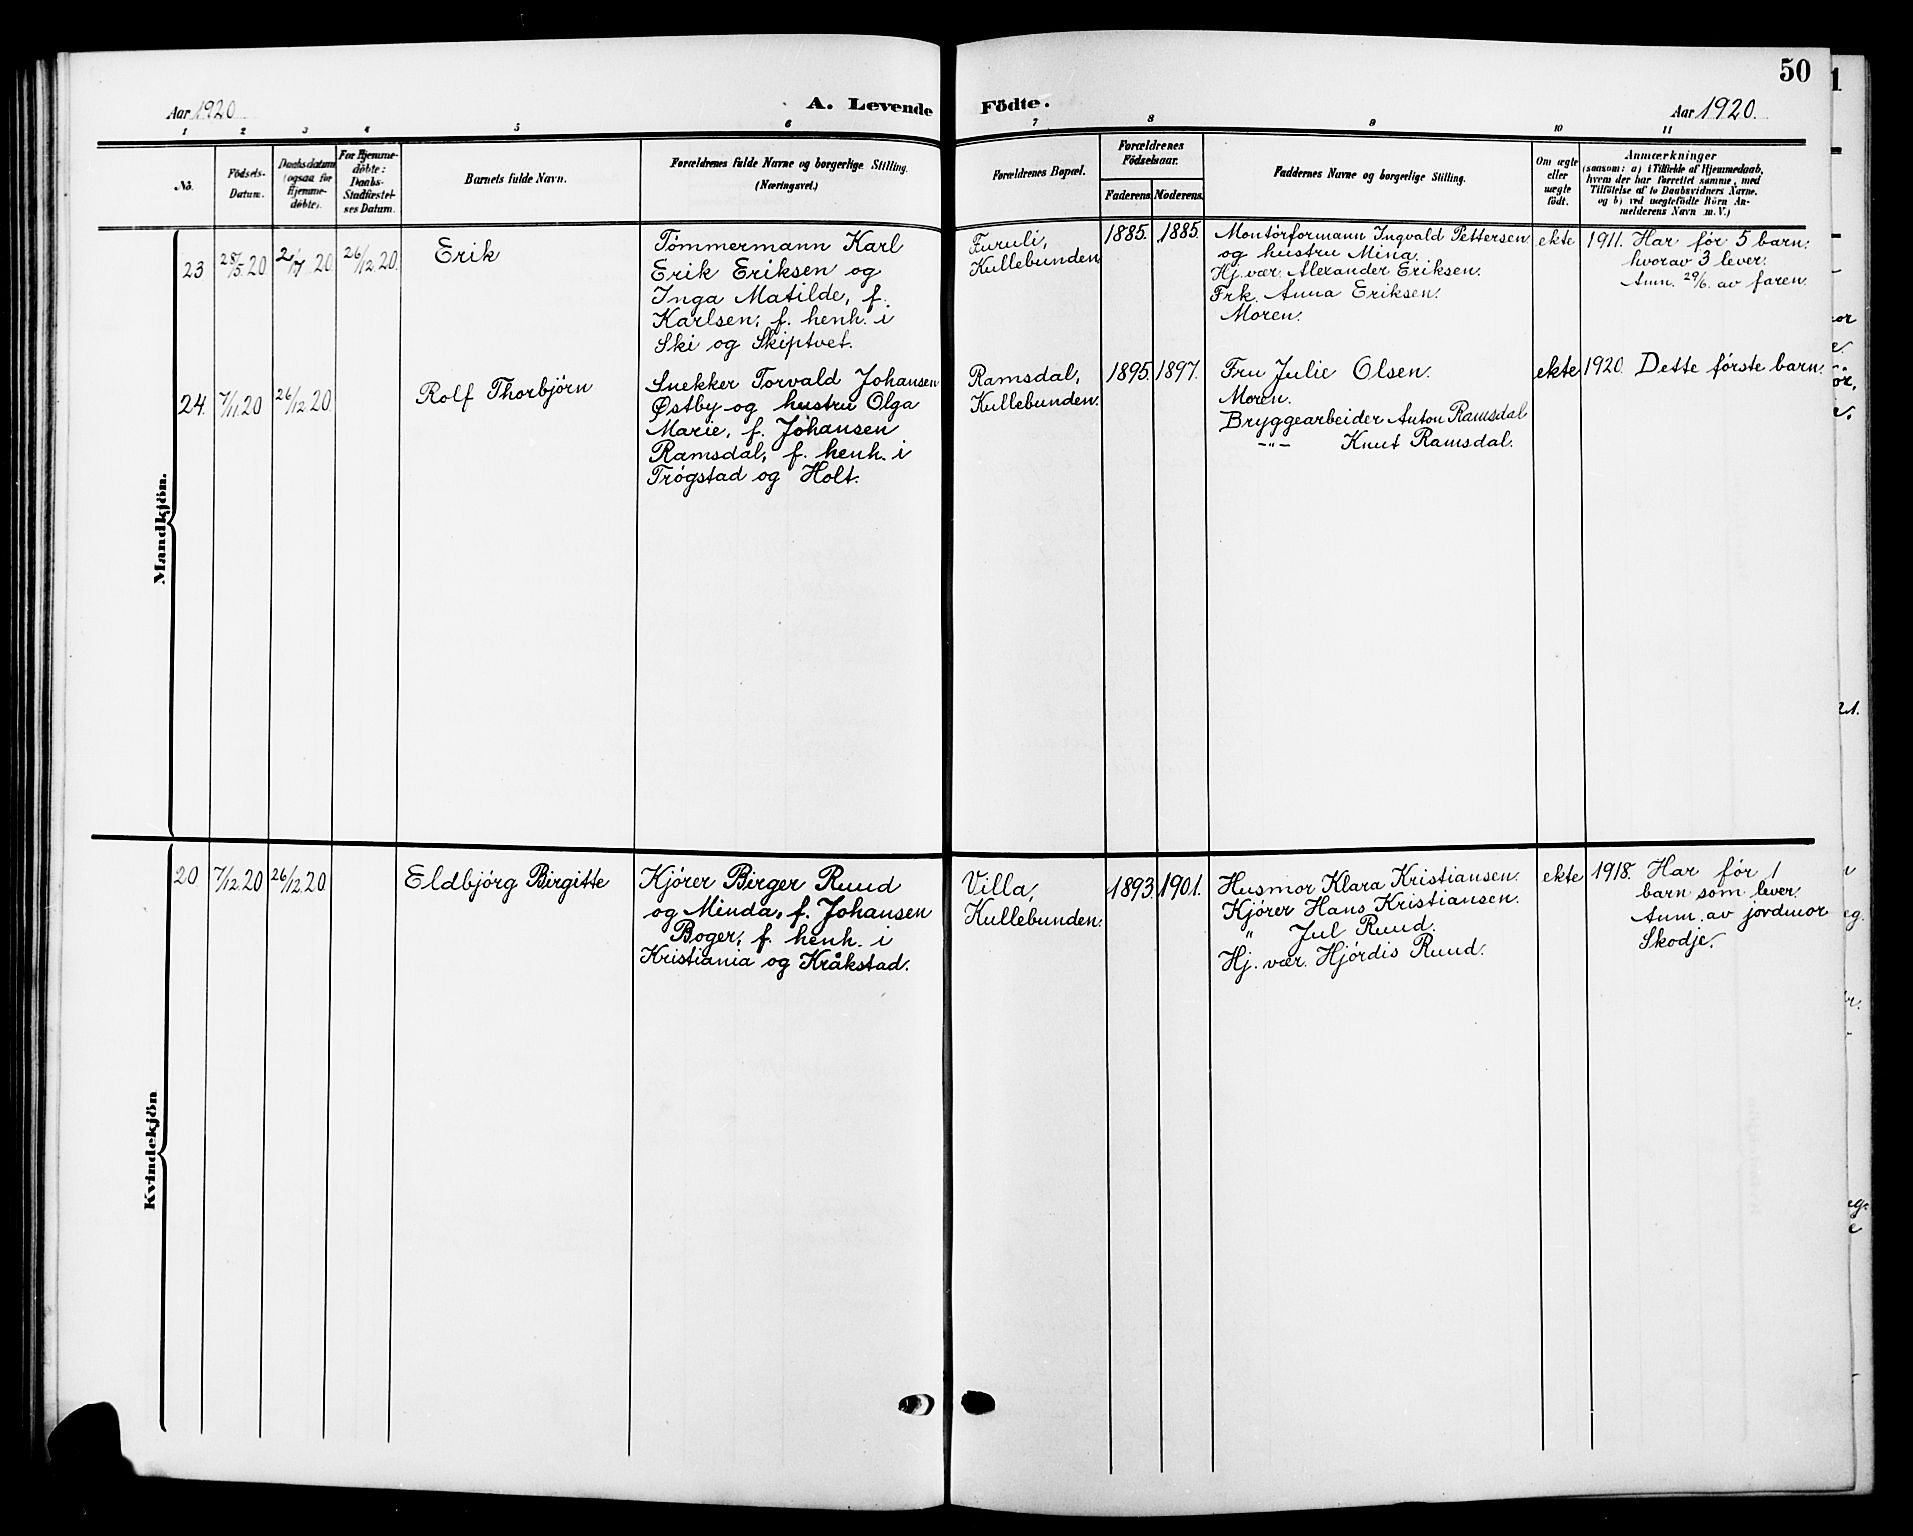 50
Aar 1920
A. Levende
Födte.
Aar 1920.
1 2 3 4 5 6 7 8 9 10 11
No.
Födsels-
Datum.
Daabsdatum
(ogsaa for
Hjemme-
döbte).
For Hjemme-
döbte:
Daabs-
Stadfæstel-
ses Datum.
Barnets fulde Navn.
Forældrenes fulde Navne og borgerlige Stilling.
(Næringsvei.)
Forældrenes Bopæl.
Forældrenes
Födselsaar.
Faderens.
Moderens.
Faddernes Navne og borgerlige Stilling.
Om ægte
eller
uægte
födt.
Anmærkninger
(saasom: a) i Tilfælde af Hjemmedaab,
hvem der har forrettet samme, med
Tilföielse af to Daabsvidners Navne.
og b) ved uægtefödte Börn An-
melderens Navn m. V.)
Mandkjön.
23
28/5 20
2/7 20
26/12 20
Erik
Tømmermann Karl
Erik Eriksen og
Inga Matilde, f.
Karlsen, f. henh. i
Ski og Skiptvet.
Furuli,
Kullebunden
1885.
1885.
Montørformann Ingvald Pettersen
og hustru Mina.
Hj.vær. Alexander Eriksen.
Frk. Anna Eriksen.
Moren.
ekte
1911. Har før 5 barn,
hvorav 3 lever.
Anm. 29/6. av faren.
24.
7/11 20
26/12 20
Rolf Thorbjørn
Snekker Torvald Johansen
Østby og hustru Olga
Marie, f. Johansen
Ramsdal, f. henh. i
Trøgstad og Holt.
Ramsdal,
Kullebunden.
1895.
1897.
Fru Julie Olsen.
Moren.
Bryggearbeider Anton Ramsdal
-"- Knut Ramsdal.
ekte
1920. Dette første barn.
Kvindekjön
20
7/12 20
26/12 20
Eldbjørg Birgitte
Kjører Birger Ruud
og Minda, f. Johansen
Boger, f. henh. i
Kristiania og Kråkstad.
Villa,
Kullebunden.
1893.
1901.
Husmor Klara Kristiansen.
Kjører Hans Kristiansen.
" Jul Ruud.
Hj.vær. Hjørdis Ruud.
ekte
1918. Har før 1
barn som lever.
Anm. av jordmor
Skodje.